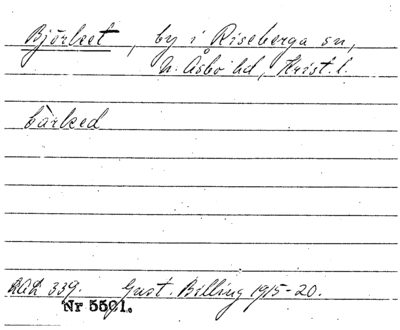 Björket, by i Riseberga sn,
N. Åsbo hd, Krist. l.
bàrked
339. Gust. Billing 1915-20.
Nr 5501.